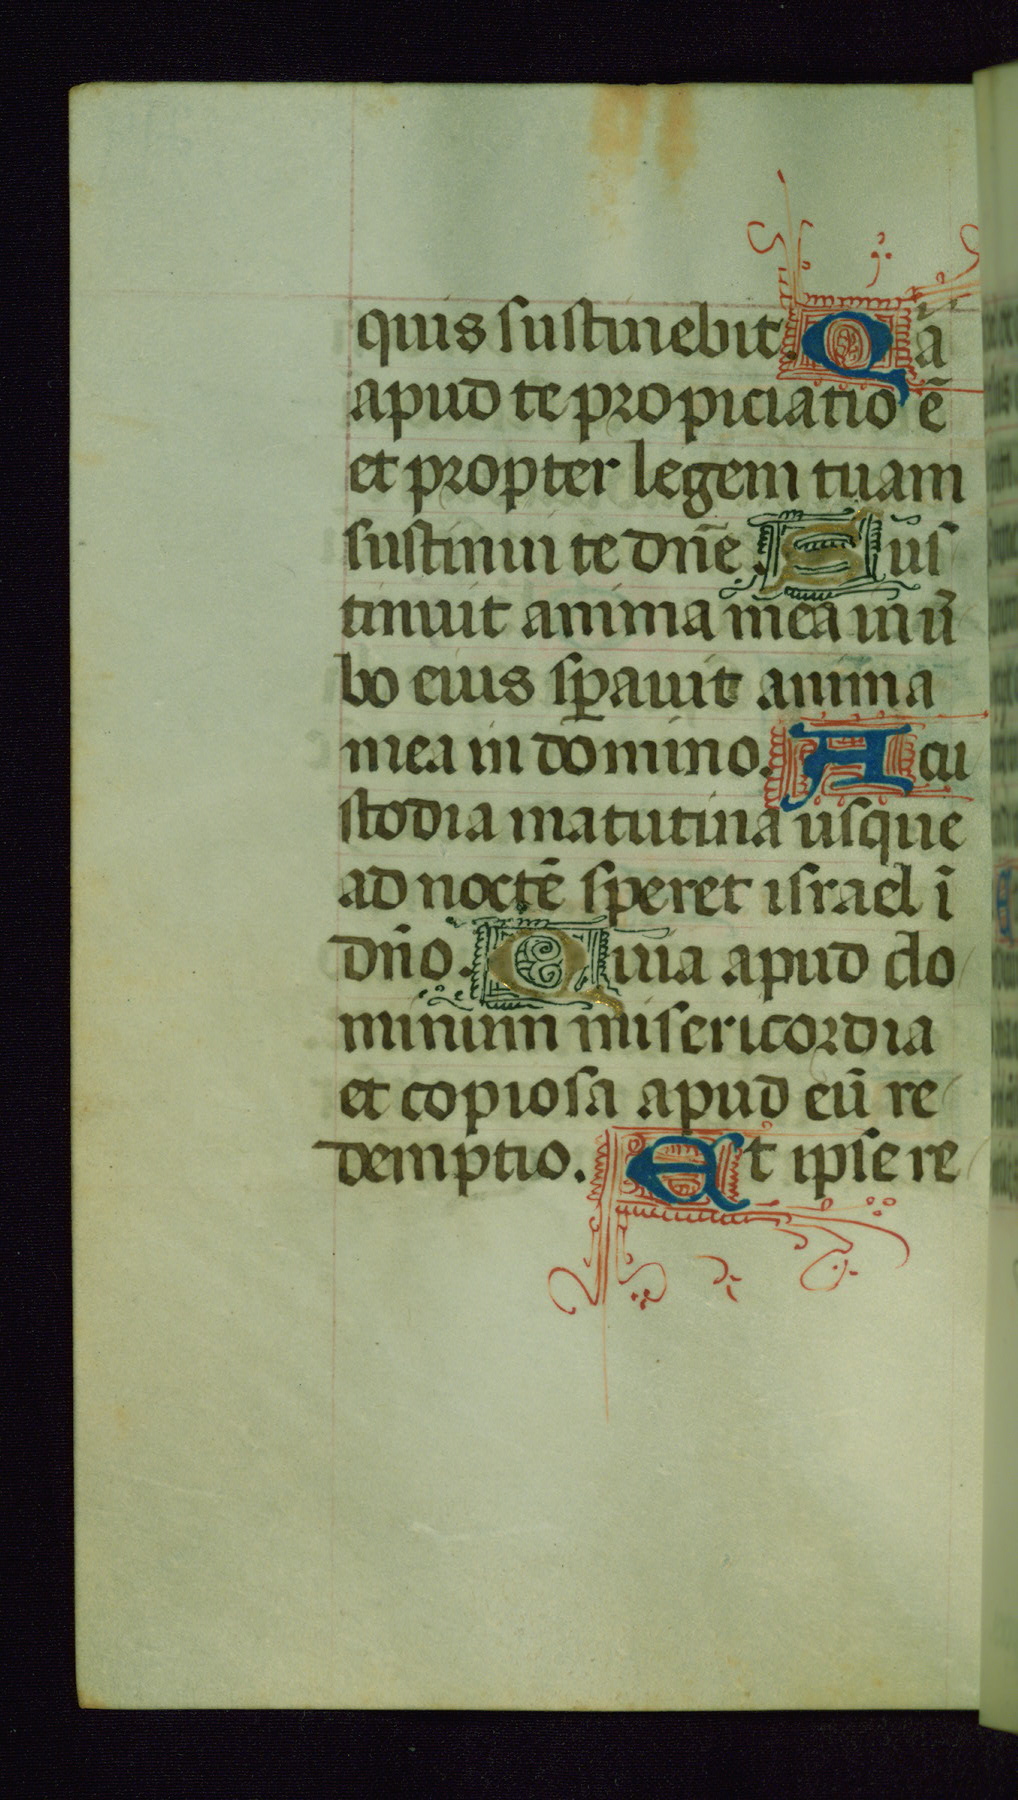 quis sustinebit. Qia
apud te propiciatio ē
et propter legem tuam
sustinui te dn̄e. Sus
tinuit anima mea in ū
bo eius sꝑauit anima
mea in domino. A cu
stodia matutina usque
ad noctē speret israel ī
dn̄o. Quia apud do
minum misericordia
et copiosa apud eū re
demptio. Et ipse re